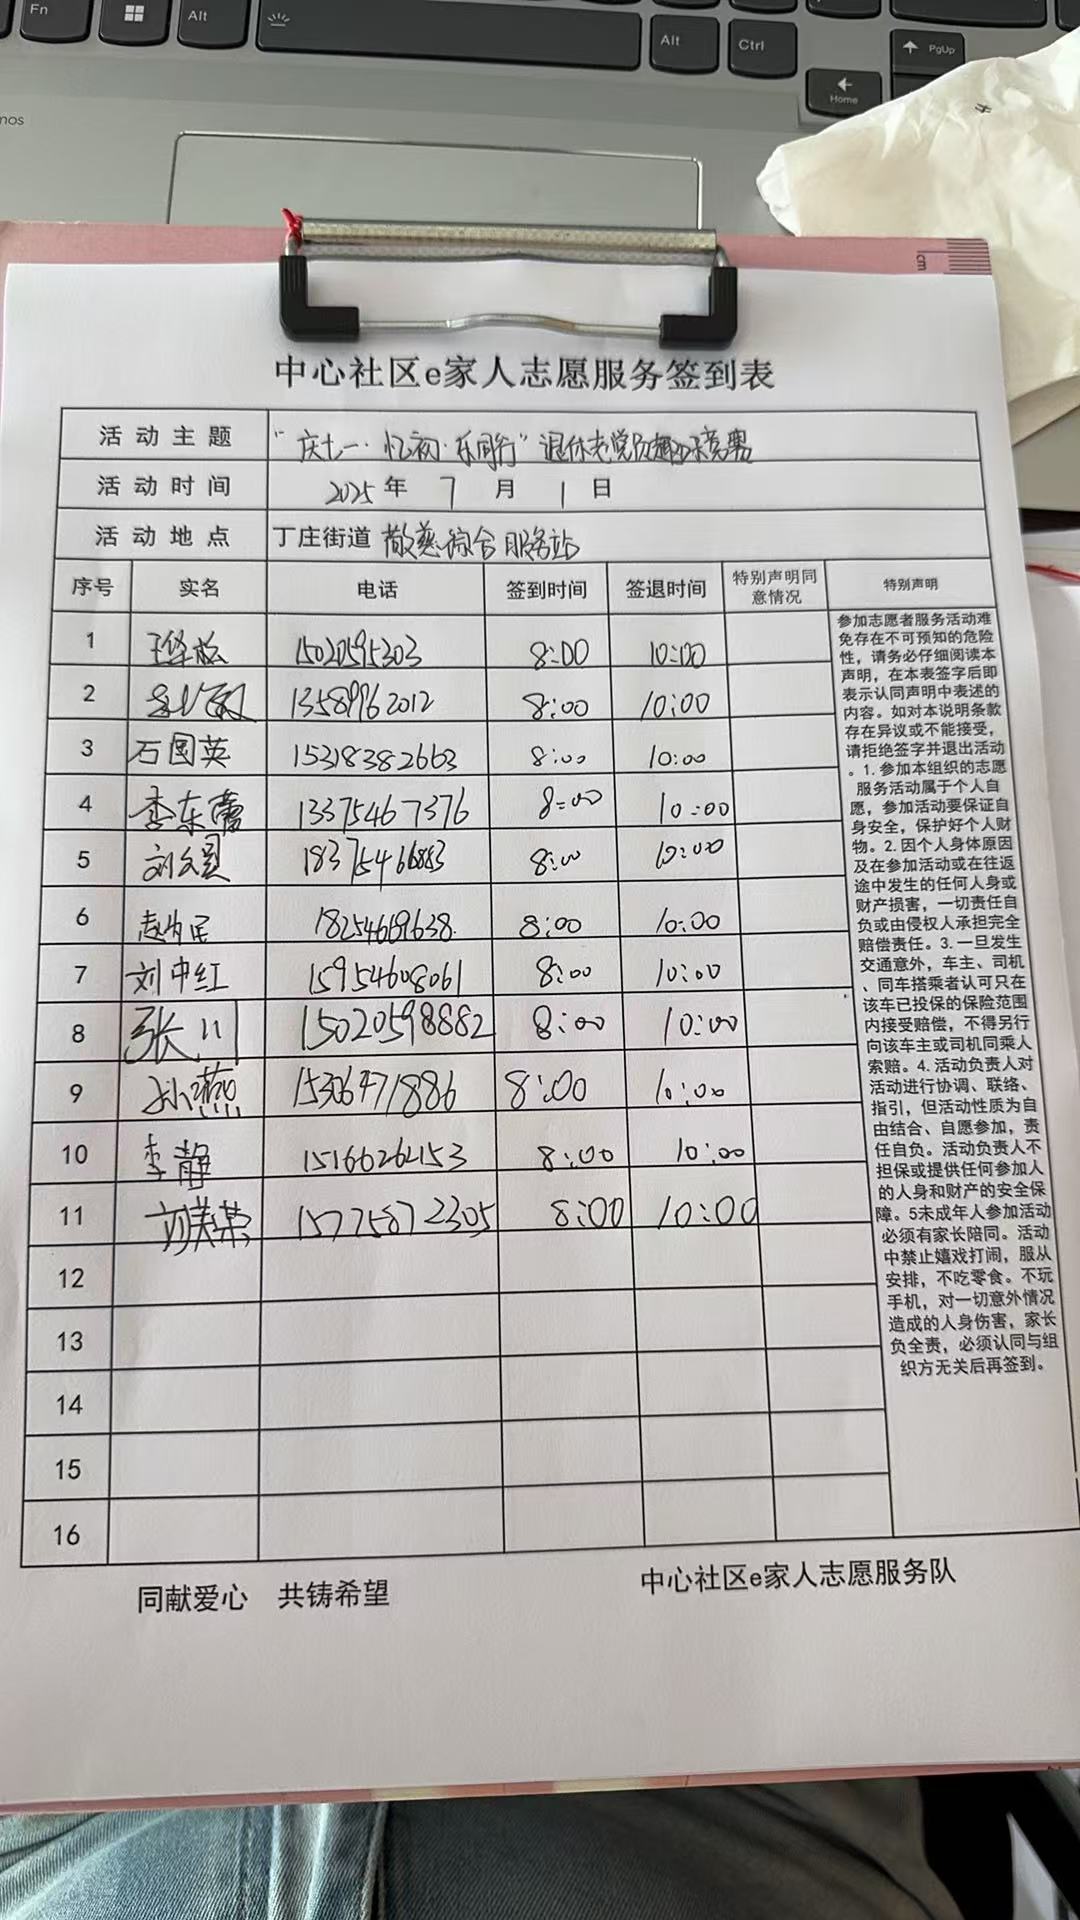 Fn
Alt
Alt
Ctrl
PgUp
Home
nos
cm
中心社区e家人志愿服务签到表
活动主题 "庆七一·忆初·乐同行"退休老党员趣味竞赛
活动时间 2025年 7 月 1 日
活动地点 丁庄街道 综合服务站
序号 实名 电话 签到时间 签退时间 特别声明同意情况 特别声明
1 15020595303 8:00 10:00
2 13589962012 8:00 10:00
3 石国英 15318382663 8:00 10:00
4 李东蕾 13375467376 8:00 10:00
5 刘 18375466883 8:00 10:00
6 赵 18254669638 8:00 10:00
7 刘中红 15954608061 8:00 10:00
8 张川 15020598882 8:00 10:00
9 孙燕 15306471886 8:00 10:00
10 李静 15166262153 8:00 10:00
11 刘美荣 15775872305 8:00 10:00
12
13
14
15
16
参加志愿者服务活动难
免存在不可预知的危险
性，请务必仔细阅读本
声明，在本表签字后即
表示认同声明中表述的
内容。如对本说明条款
存在异议或不能接受，
请拒绝签字并退出活动
。1.参加本组织的志愿
服务活动属于个人自
愿，参加活动要保证自
身安全，保护好个人财
物。2.因个人身体原因
及在参加活动或在往返
途中发生的任何人身或
财产损害，一切责任自
负或由侵权人承担完全
赔偿责任。3.一旦发生
交通意外，车主、司机
、同车搭乘者认可只在
该车已投保的保险范围
内接受赔偿，不得另行
向该车主或司机同乘人
索赔。4.活动负责人对
活动进行协调、联络、
指引，但活动性质为自
由结合、自愿参加，责
任自负。活动负责人不
担保或提供任何参加人
的人身和财产的安全保
障。5未成年人参加活动
必须有家长陪同。活动
中禁止嬉戏打闹，服从
安排，不吃零食。不玩
手机，对一切意外情况
造成的人身伤害，家长
负全责，必须认同与组
织方无关后再签到。
同献爱心 共铸希望
中心社区e家人志愿服务队